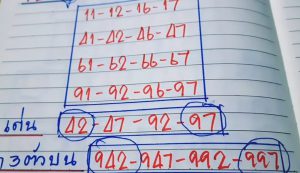 11-12-16-17
41-42-46-47
61-62-66-67
91-92-96-97
เด่น 42-47-92-97
3ตัวบน 942-947-992-997